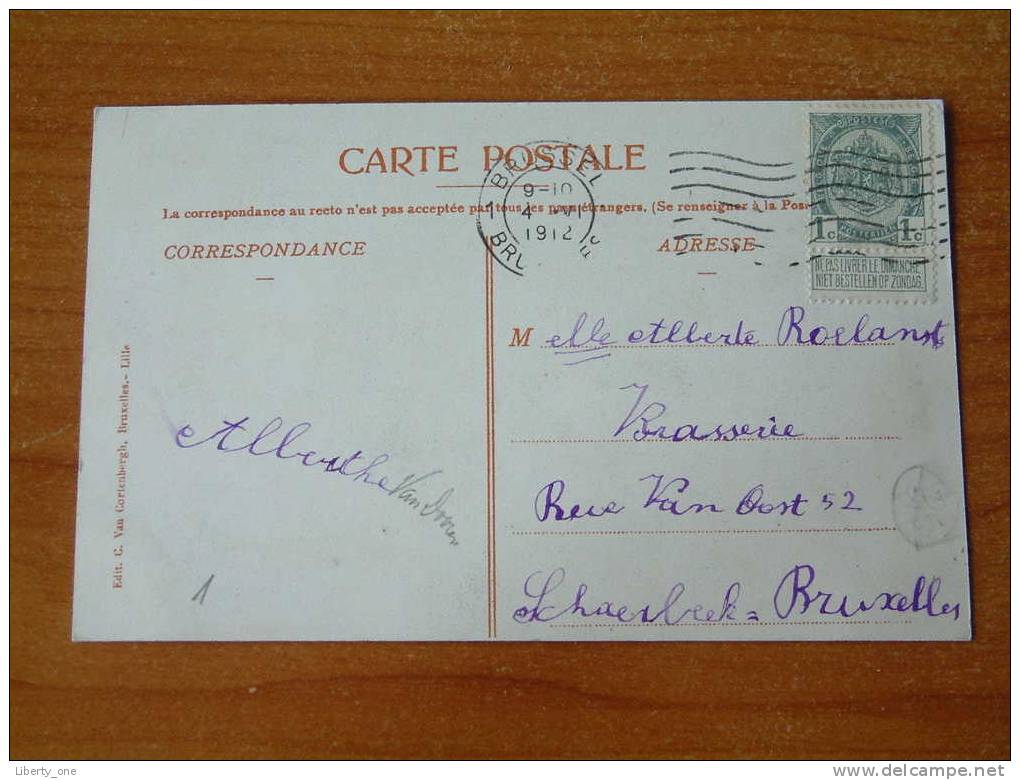 CARTE POSTALE
La correspondance au recto n'est pas acceptée par tous les pays étrangers. (Se renseigner à la Pos
CORRESPONDANCE
ADRESSE
1 BRUSSEL
9-10
4 VI
1912
BRU
POSTES
1c 1c
POSTERIJEN
NE PAS LIVRER LE DIMANCHE
NIET BESTELLEN OP ZONDAG.
Melle Alberte Roelants
Brasserie
Rue Van Oost 52
Schaerbeek = Bruxelles
Alberthe
1
Edit. C. Van Cortenbergh, Bruxelles.- Lille
Liberty_one
delcampe.net